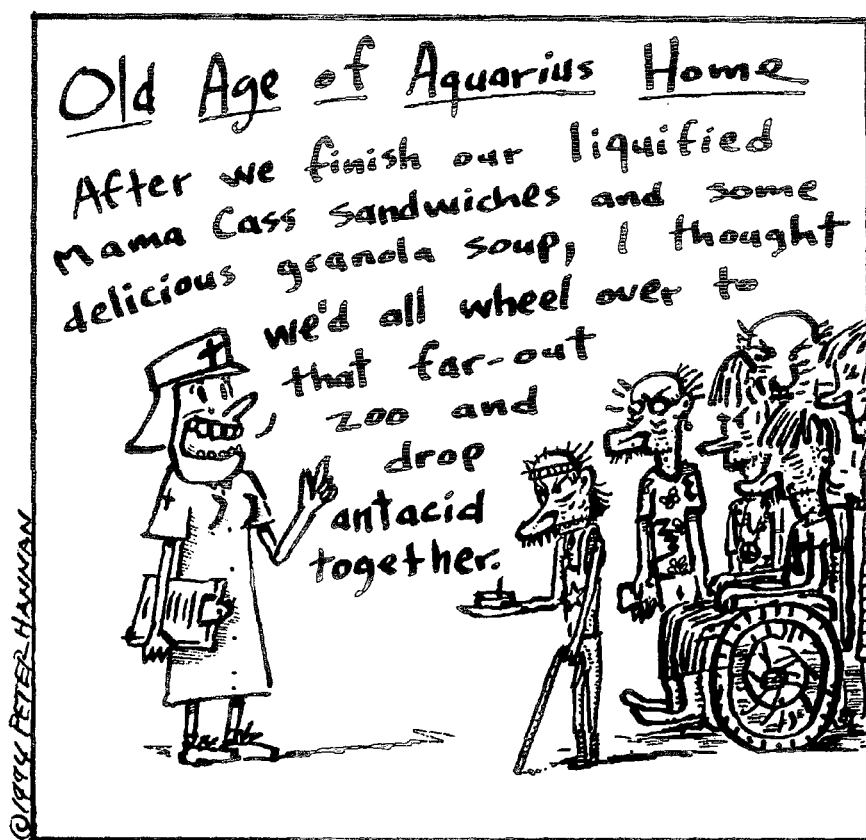 Old Age of Aquarius Home
After we finish our liquified
Mama Cass sandwiches and some
delicious granola soup, I thought
we'd all wheel over to
that far-out
zoo and
drop
antacid
together.
©1994 PETER HANNAN